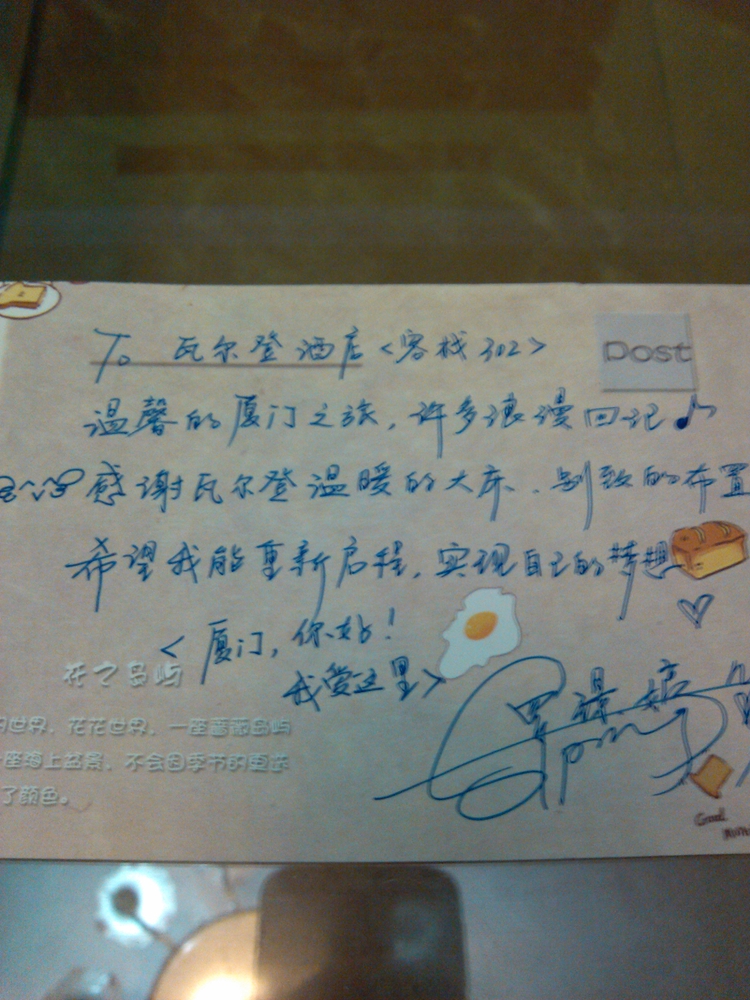 To 瓦尔登酒店<客栈302>
Post
温馨的厦门之旅,许多浪漫回记♪
感谢瓦尔登温暖的大床、别致的布置
希望我能重新启程,实现自己的梦想
<厦门,你好!
我爱这里>
花之岛屿
的世界,花花世界,一座蔷薇岛屿
座海上盆景,不会因季节的更迭
了颜色。
Good